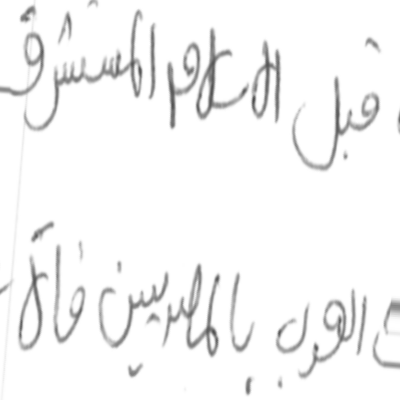 قبل الاسلام المستشرق
العرب بالمصريين فالآ